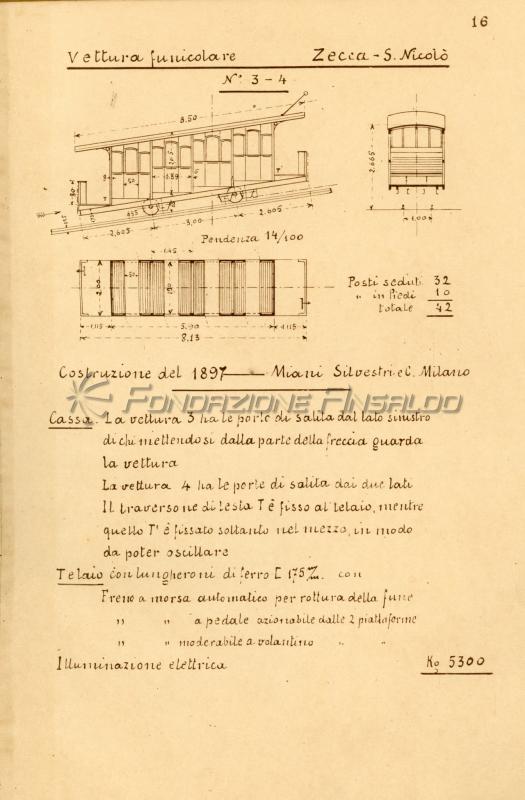 16
Vettura funicolare Zecca - S. Nicolò
N° 3 - 4
8.50
2.665
2.605 3,00 2.605
Pendenza 14/100
1.00
1.45
2.00
Posti seduti 32
" in Piedi 10
totale 42
1.115 5.90 1.115
8.13
Costruzione del 1897 — Miani Silvestri e C. Milano
FONDAZIONE FINSALDO
Cassa. La vettura 3 ha le porte di salita dal lato sinistro
di chi mettendosi dalla parte della freccia guarda
la vettura
La vettura 4 ha le porte di salita dai due lati
Il traversone di testa T è fisso al telaio, mentre
quello T' è fissato soltanto nel mezzo, in modo
da poter oscillare
Telaio con lungheroni di ferro [ 175 m/m con
Freno a morsa automatico per rottura della fune
" " a pedale azionabile dalle 2 piattaforme
" " moderabile a volantino " "
Illuminazione elettrica Kg 5300